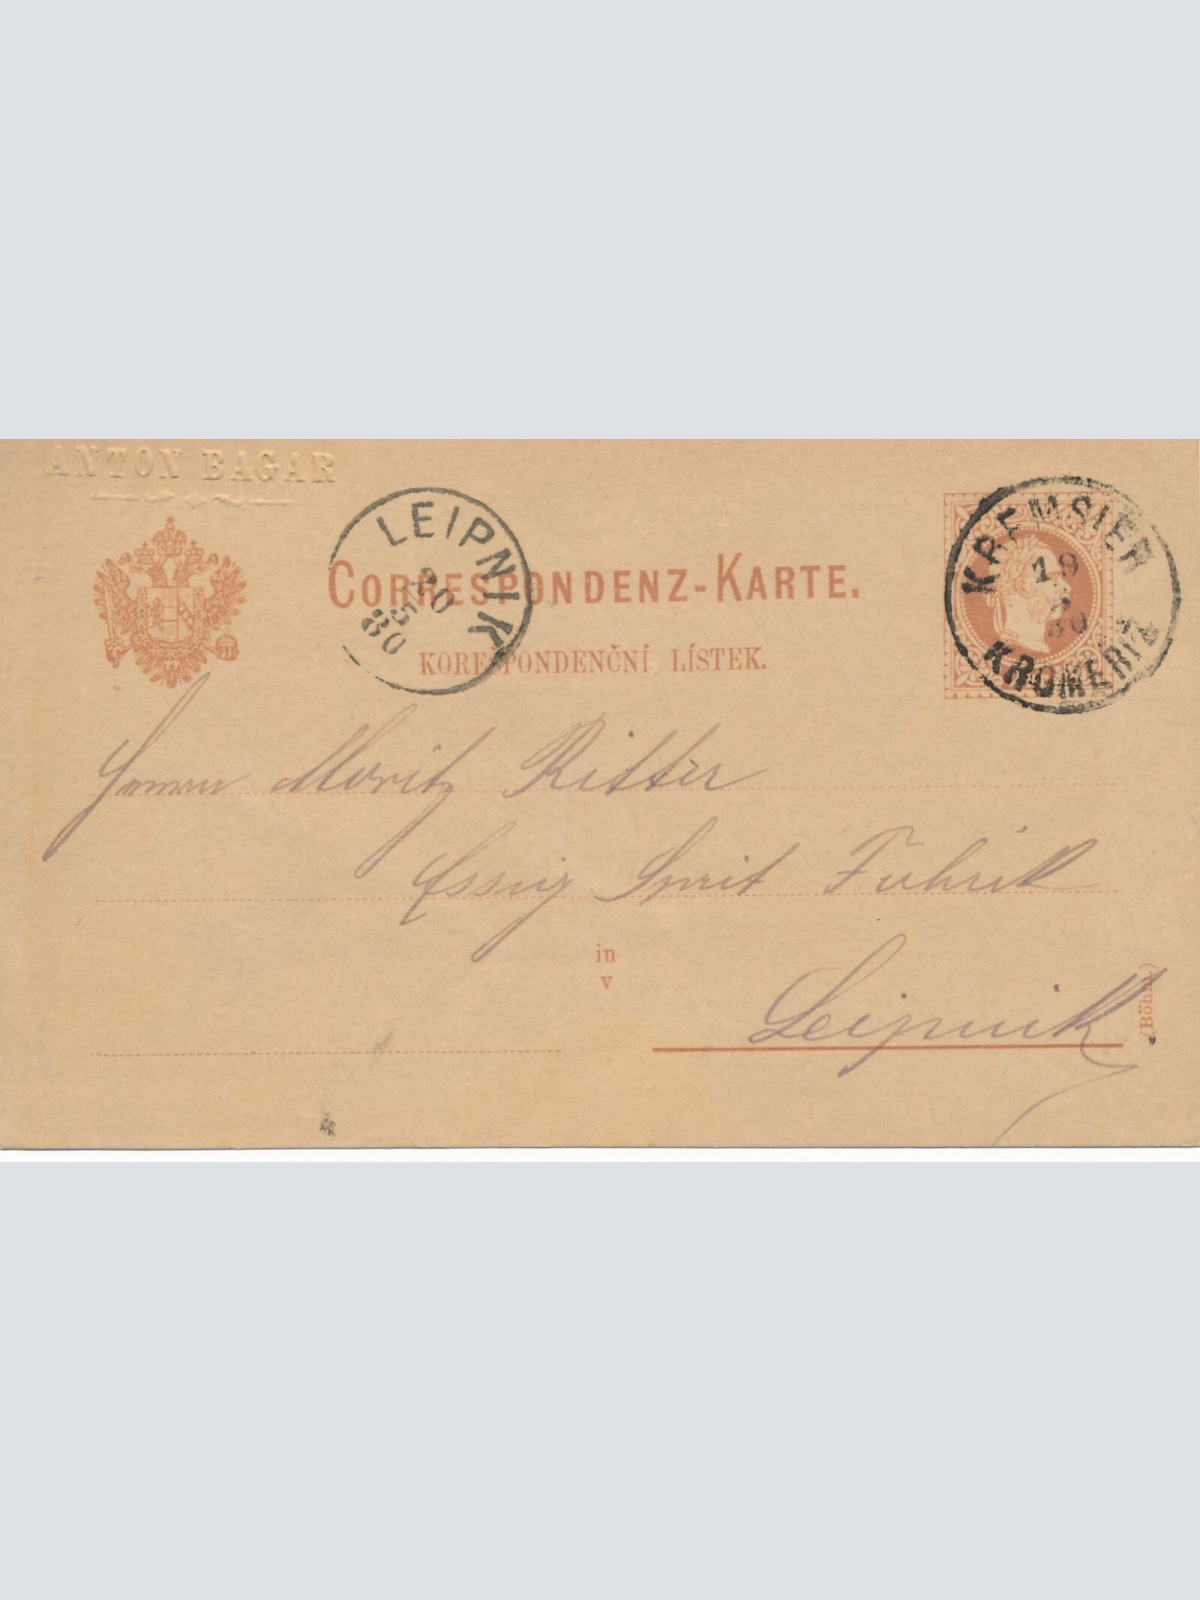 ANTON BAGAR
LEIPNIK
20
5
80
CORRESPONDENZ-KARTE.
KORESPONDENČNÍ LÍSTEK.
KREMSIER
19
5
80
KROMĚŘIŽ
Herrn Moritz Ritter
Essig Sprit Fabrik
in
v
Leipnik
(Böhm.)